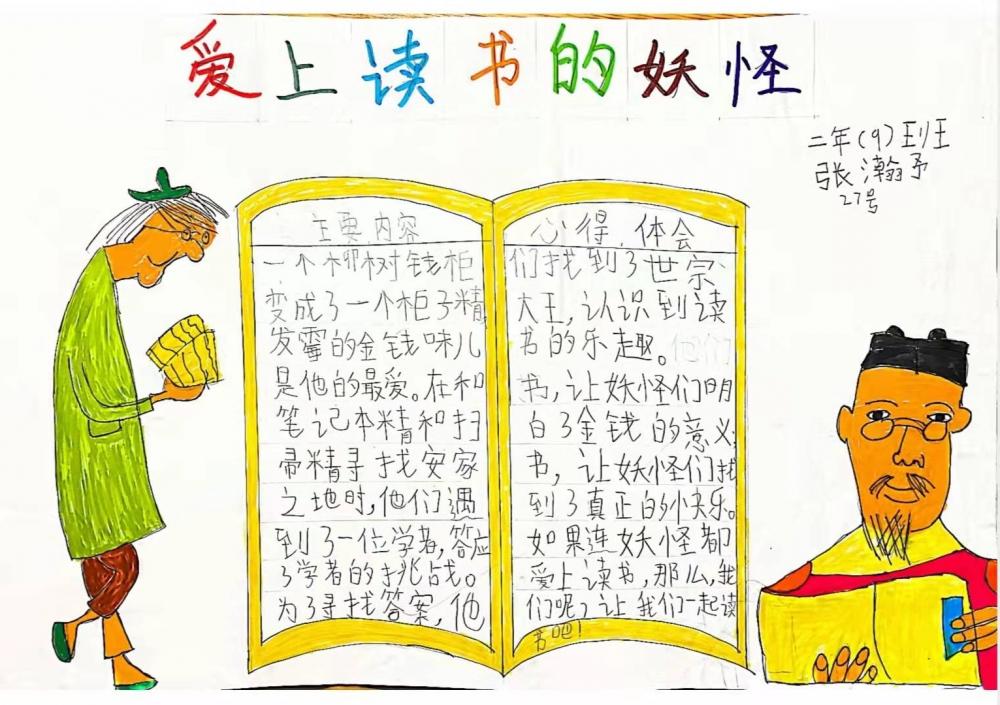 爱上读书的妖怪
二年(9)班
张瀚予
27号
主要内容
一个柳树钱柜
变成了一个柜子精,
发霉的金钱味儿
是他的最爱。在和
笔记本精和扫
帚精寻找安家
之地时,他们遇
到了一位学者,答应
了学者的挑战。
为了寻找答案,他
心得体会
们找到了世宗
大王,认识到读
书的乐趣。
书,让妖怪们明
白了金钱的意义;
书,让妖怪们找
到了真正的快乐。
如果连妖怪都
爱上读书,那么,我
们呢?让我们一起读
书吧!